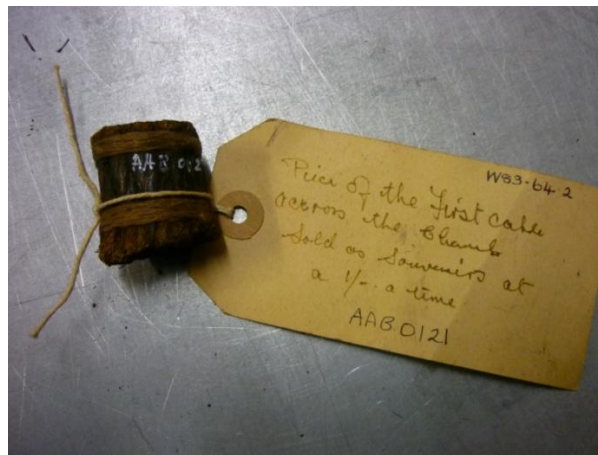 AAB 012
W83-64-2
Piece of the first cable
across the Channel
Sold as Souvenirs at
a 1/-. a time
AAB.0121